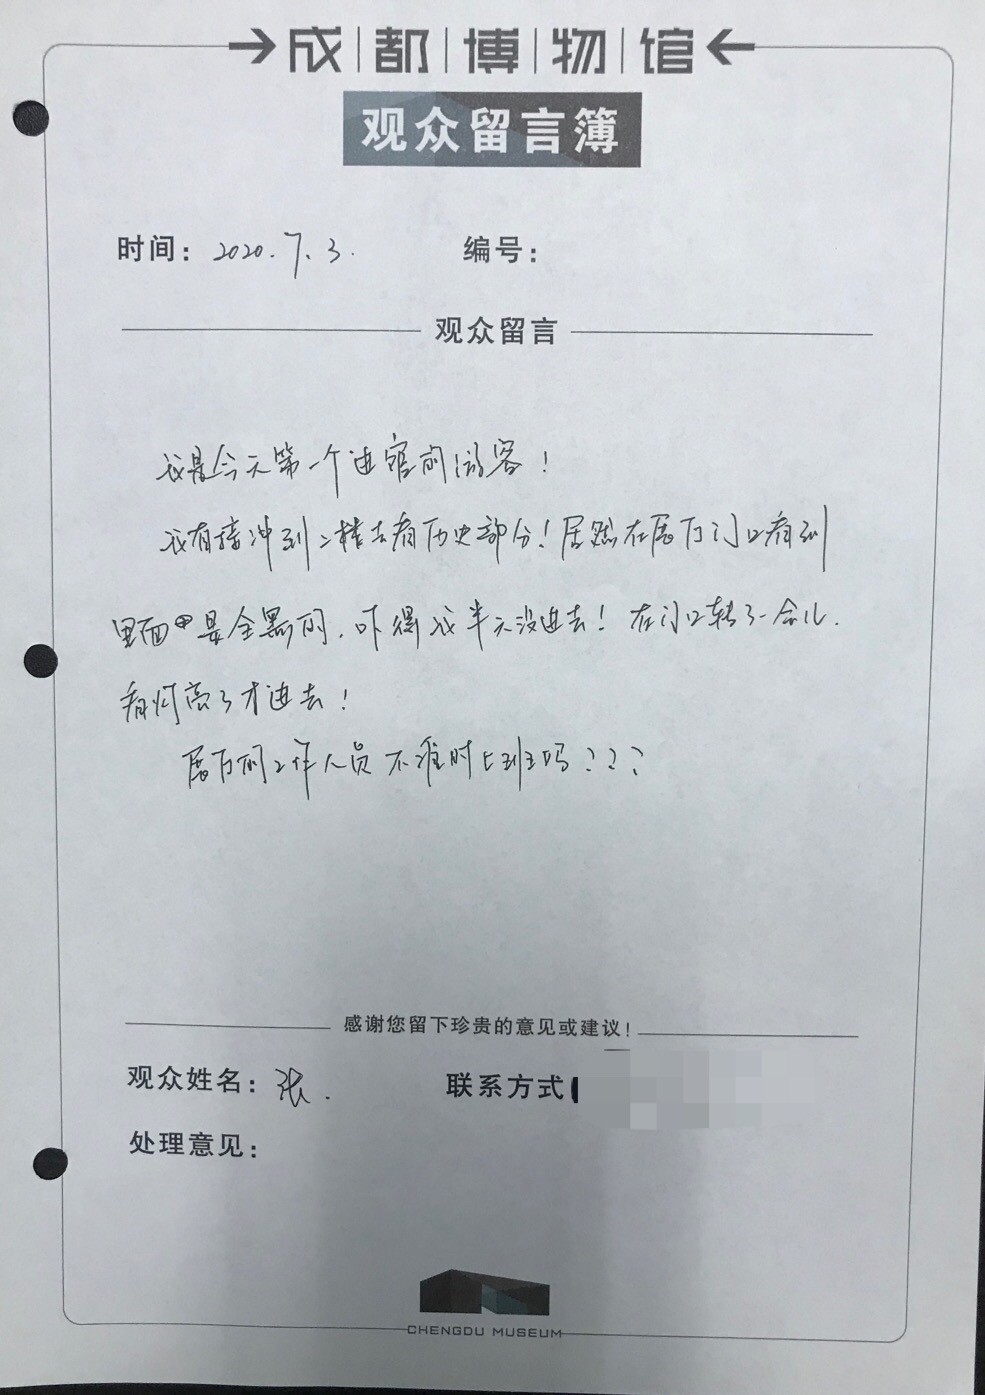 成都博物馆
观众留言簿
时间：2020.7.3.
编号：
观众留言
我是今天第一个进馆的游客！
我直接冲到二楼去看历史部分！居然在展厅门口看到
里面是全黑的，吓得我半天没进去！在门口转了一会儿，
看灯亮了才进去！
展厅的工作人员不准时上班吗？？？
感谢您留下珍贵的意见或建议！
观众姓名：张.
联系方式
处理意见：
CHENGDU MUSEUM